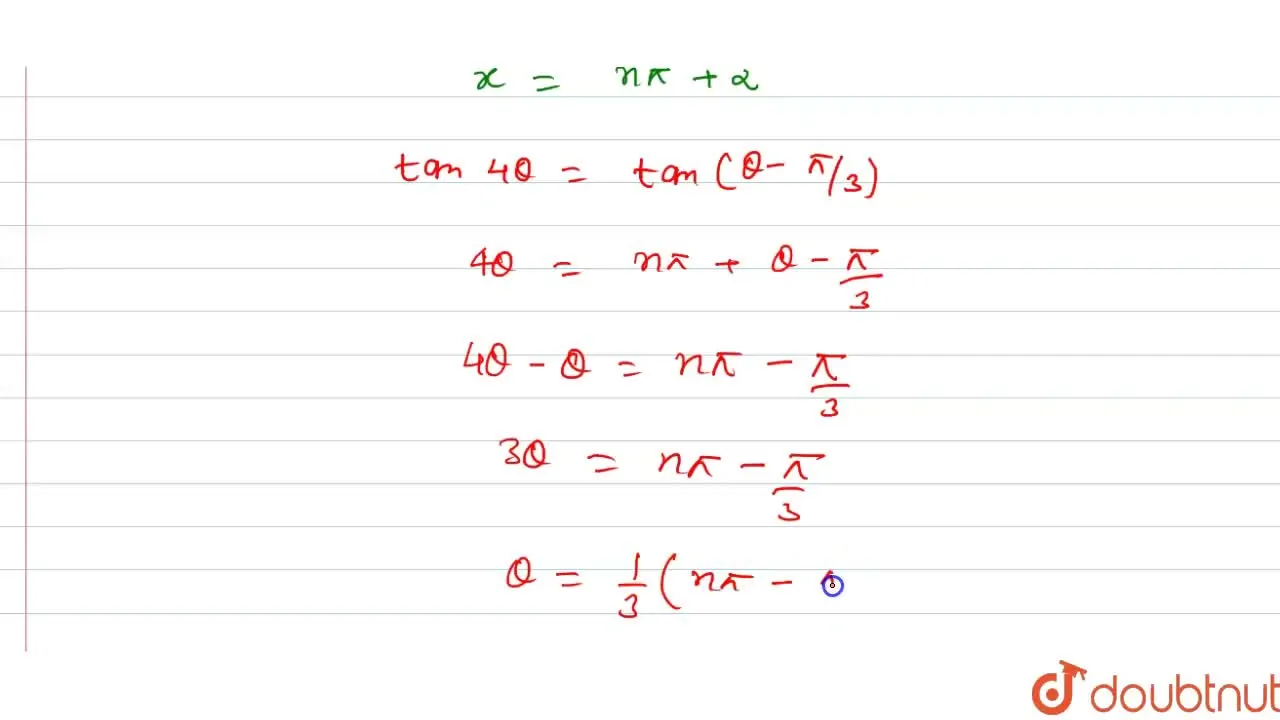 x = nπ + α
tan 4θ = tan (θ - π/3)
4θ = nπ + θ - π/3
4θ - θ = nπ - π/3
3θ = nπ - π/3
θ = 1/3 (nπ -
doubtnut